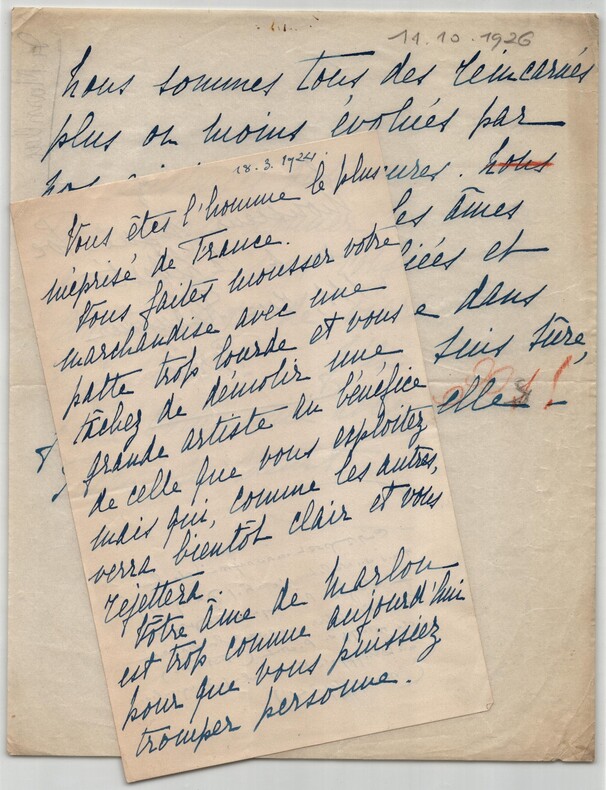 11.10.1926
Nous sommes tous des réincarnés
plus ou moins évolués par
nos
ures. Nous
les âmes
iées et
e dans
suis sûre,
elle !
18.3.1924.
Vous êtes l'homme le plus
méprisé de France.
Vous faites mousser votre
marchandise avec une
patte trop lourde et vous
tâchez de démolir une
grande artiste au bénéfice
de celle que vous exploitez
mais qui, comme les autres,
verra bientôt clair et vous
rejettera.
Vôtre âme de Marlou
est trop comme aujourd'hui
pour que vous puissiez
tromper personne.